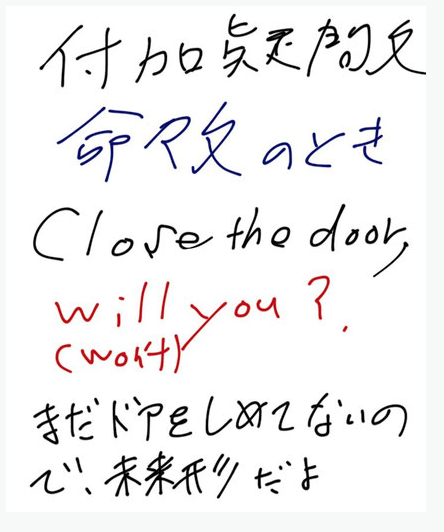 付加疑問文
命令文のとき
Close the door,
will you?
(won't)
まだドアをしめてないの
で、未来形だよ